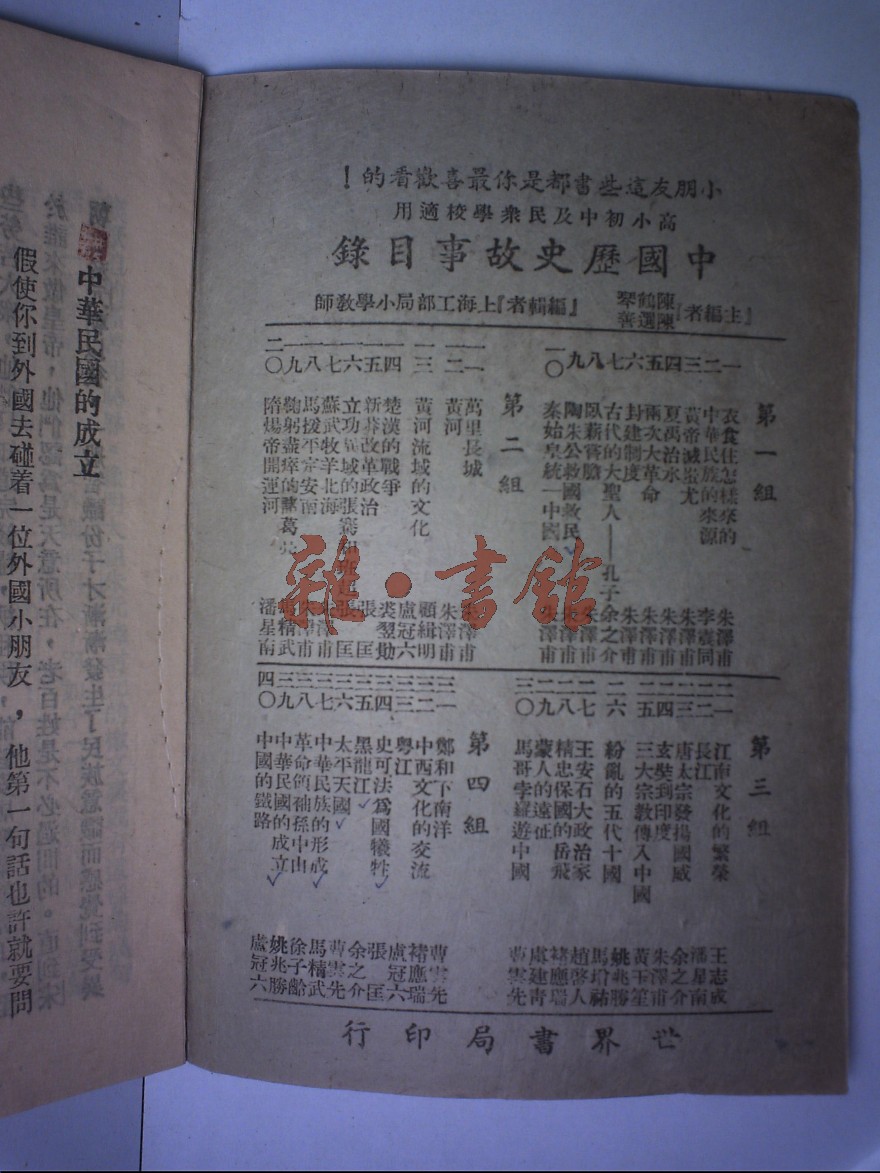 小朋友這些書都是你最喜歡看的！
高小初中及民衆學校適用
中國歷史故事目錄
『主編者』陳鶴琴 陳選善 『編輯者』上海工部局小學教師
第一組
一 衣食住怎樣來的 朱澤甫
二 中華民族的來源 李震同
三 黃帝滅蚩尤 朱澤甫
四 夏禹治水 朱澤甫
五 兩次大革命 朱澤甫
六 封建制度 朱澤甫
七 古代的大聖人——孔子 余之介
八 臥薪嘗膽 朱澤甫
九 陶朱公救國救民 朱澤甫
一〇 秦始皇統一中國 朱澤甫
第二組
一一 萬里長城 朱澤甫
一二 黃河 朱澤甫
一三 黃河流域的文化 顧緝明
一四 楚漢的戰爭 盧冠六
一五 新莽改革政治 裘翌勛
一六 立功異域的張騫和班超 張匡
一七 蘇武牧羊北海 朱澤甫
一八 馬援平定安南 朱澤甫
一九 鞠躬盡瘁的諸葛亮 馬精武
二〇 隋煬帝開運河 潘星南
第三組
二一 江南文化的繁榮 王志成
二二 長江 潘星南
二三 唐太宗發揚國威 余之介
二四 玄奘到印度 朱澤甫
二五 三大宗教傳入中國 黃玉笙
二六 紛亂的五代十國 姚兆勝
二七 王安石大政治家 馬增祜
二八 精忠保國的岳飛 趙啓人
二九 蒙人的遠征 褚應瑞
三〇 馬哥孛羅遊中國 虞建靑
曹雲先
第四組
三一 鄭和下南洋 曹雲先
三二 中西文化的交流 褚應瑞
三三 粵江 盧冠六
三四 史可法爲國犧牲 張匡
三五 黑龍江 余之介
三六 太平天國 曹雲先
三七 中華民族的形成 馬精武
三八 革命領袖孫中山 徐子齡
三九 中華民國的成立 姚兆勝
四〇 中國的鐵路 盧冠六
世界書局印行
雜·書館
中華民國的成立
假使你到外國去碰着一位外國小朋友，他第一句話也許就要問